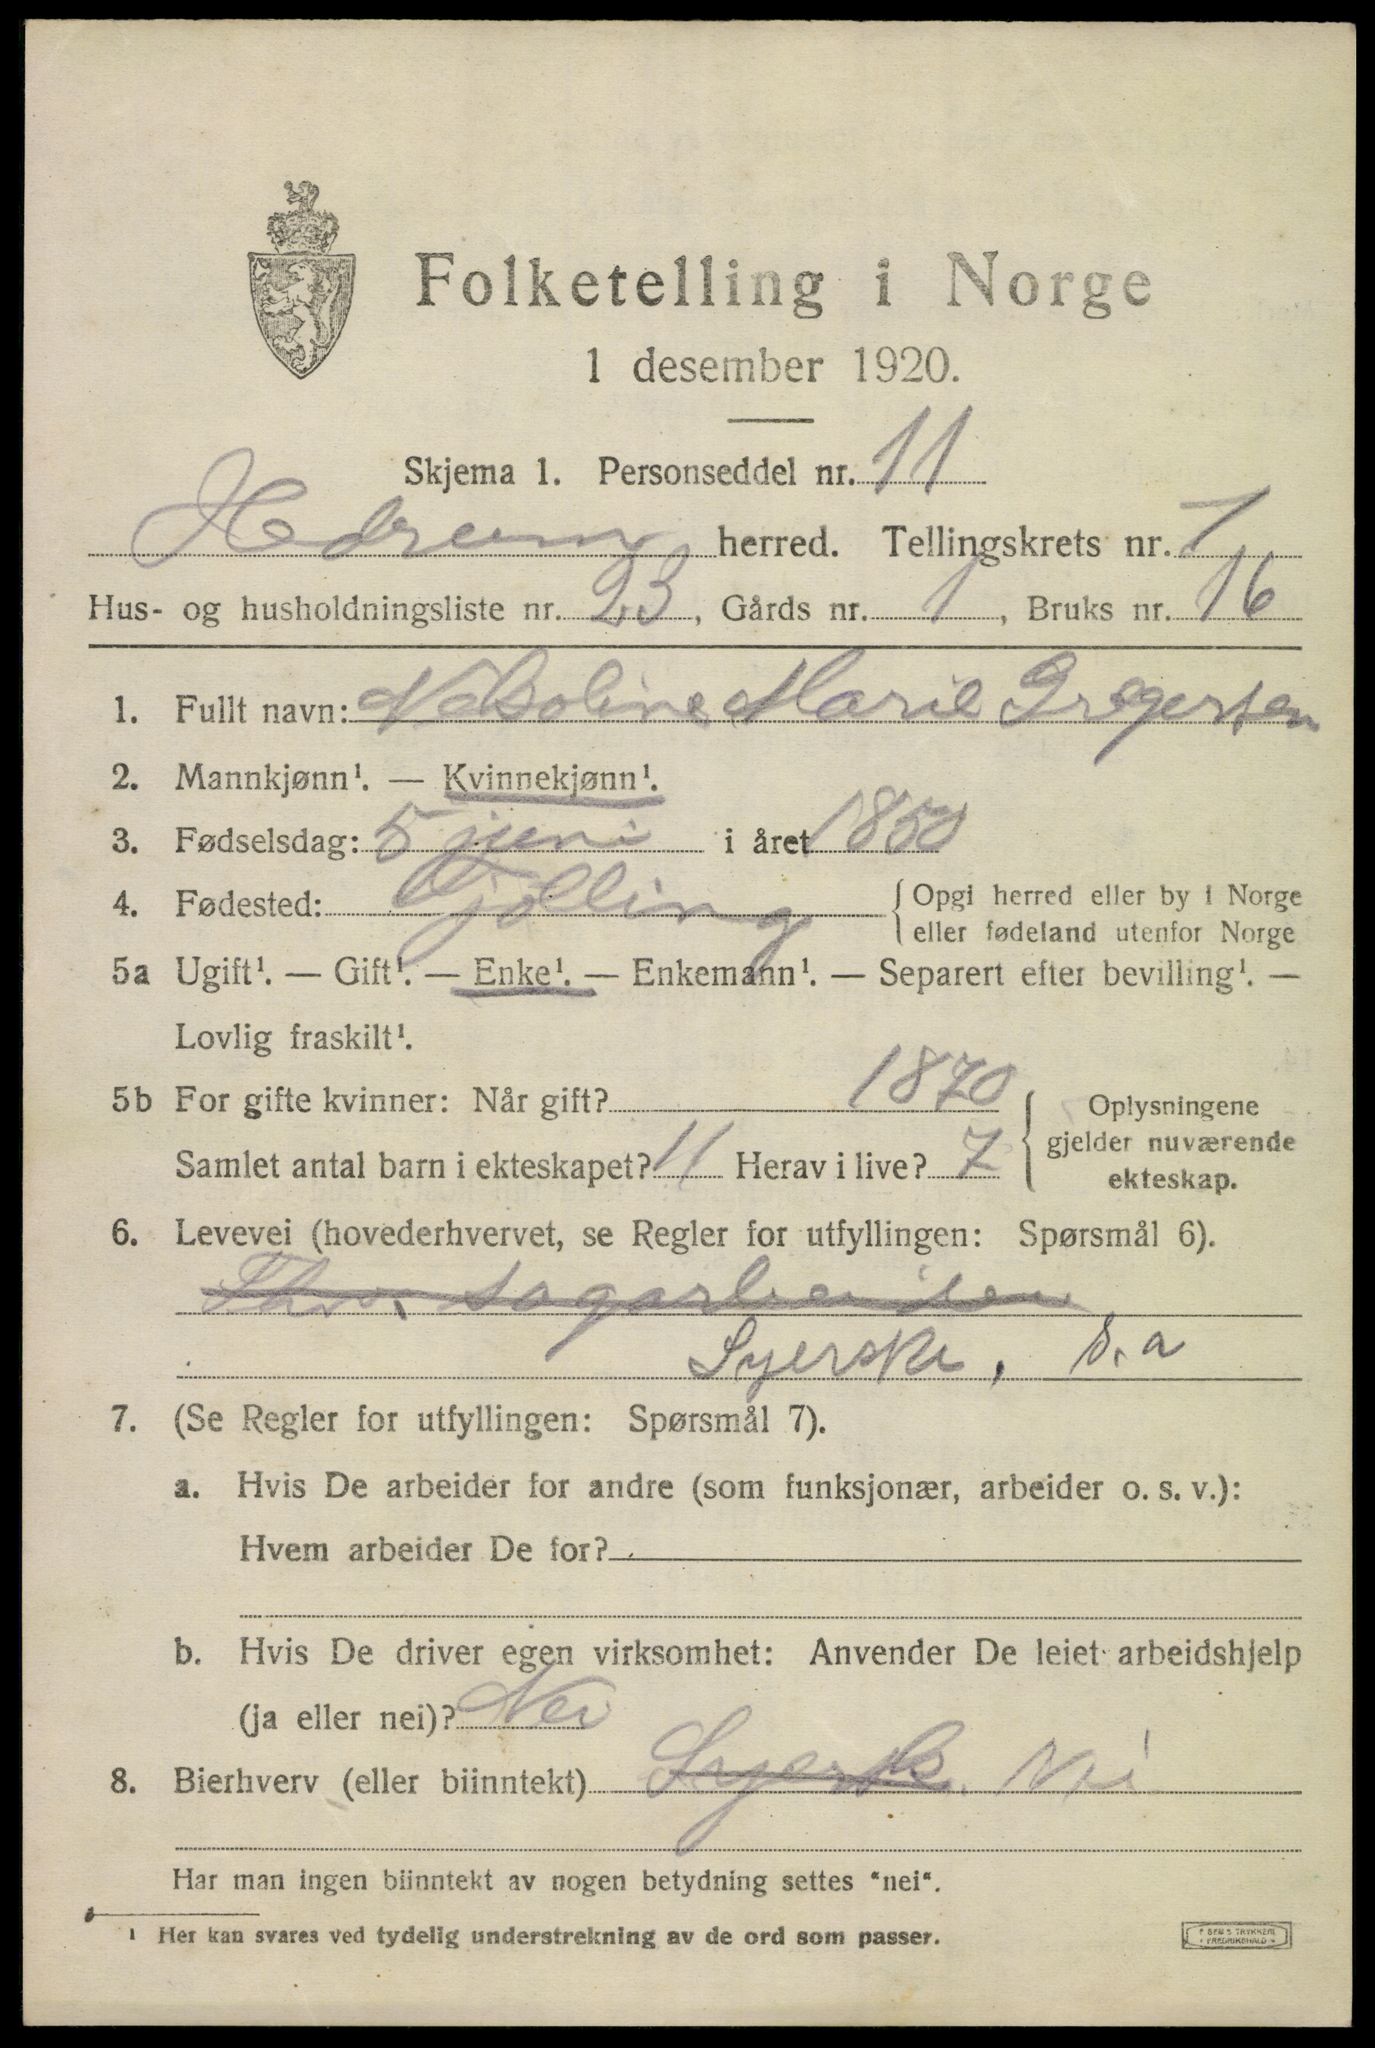 Folketelling i Norge
1 desember 1920.
Skjema 1. Personseddel nr. 11
Hedrum herred. Tellingskrets nr. 7
Hus- og husholdningsliste nr. 23, Gårds nr. 1, Bruks nr. 16
1. Fullt navn: Marie Gregersen
2. Mannkjønn¹. — Kvinnekjønn¹.
3. Fødselsdag: 5 juni i året 1850
4. Fødested: Tjølling {Opgi herred eller by i Norge
eller fødeland utenfor Norge
5a Ugift¹. — Gift¹. — Enke¹. — Enkemann¹. — Separert efter bevilling¹. —
Lovlig fraskilt¹.
5b For gifte kvinner: Når gift? 1870
Samlet antal barn i ekteskapet? 11 Herav i live? 7
{Oplysningene
gjelder nuværende
ekteskap.
6. Levevei (hovederhvervet, se Regler for utfyllingen: Spørsmål 6).
Syerske, s.a
7. (Se Regler for utfyllingen: Spørsmål 7).
a. Hvis De arbeider for andre (som funksjonær, arbeider o. s. v.):
Hvem arbeider De for?
b. Hvis De driver egen virksomhet: Anvender De leiet arbeidshjelp
(ja eller nei)? Nei
8. Bierhverv (eller biinntekt) Syersk. Nei
Har man ingen biinntekt av nogen betydning settes "nei".
¹ Her kan svares ved tydelig understrekning av de ord som passer.